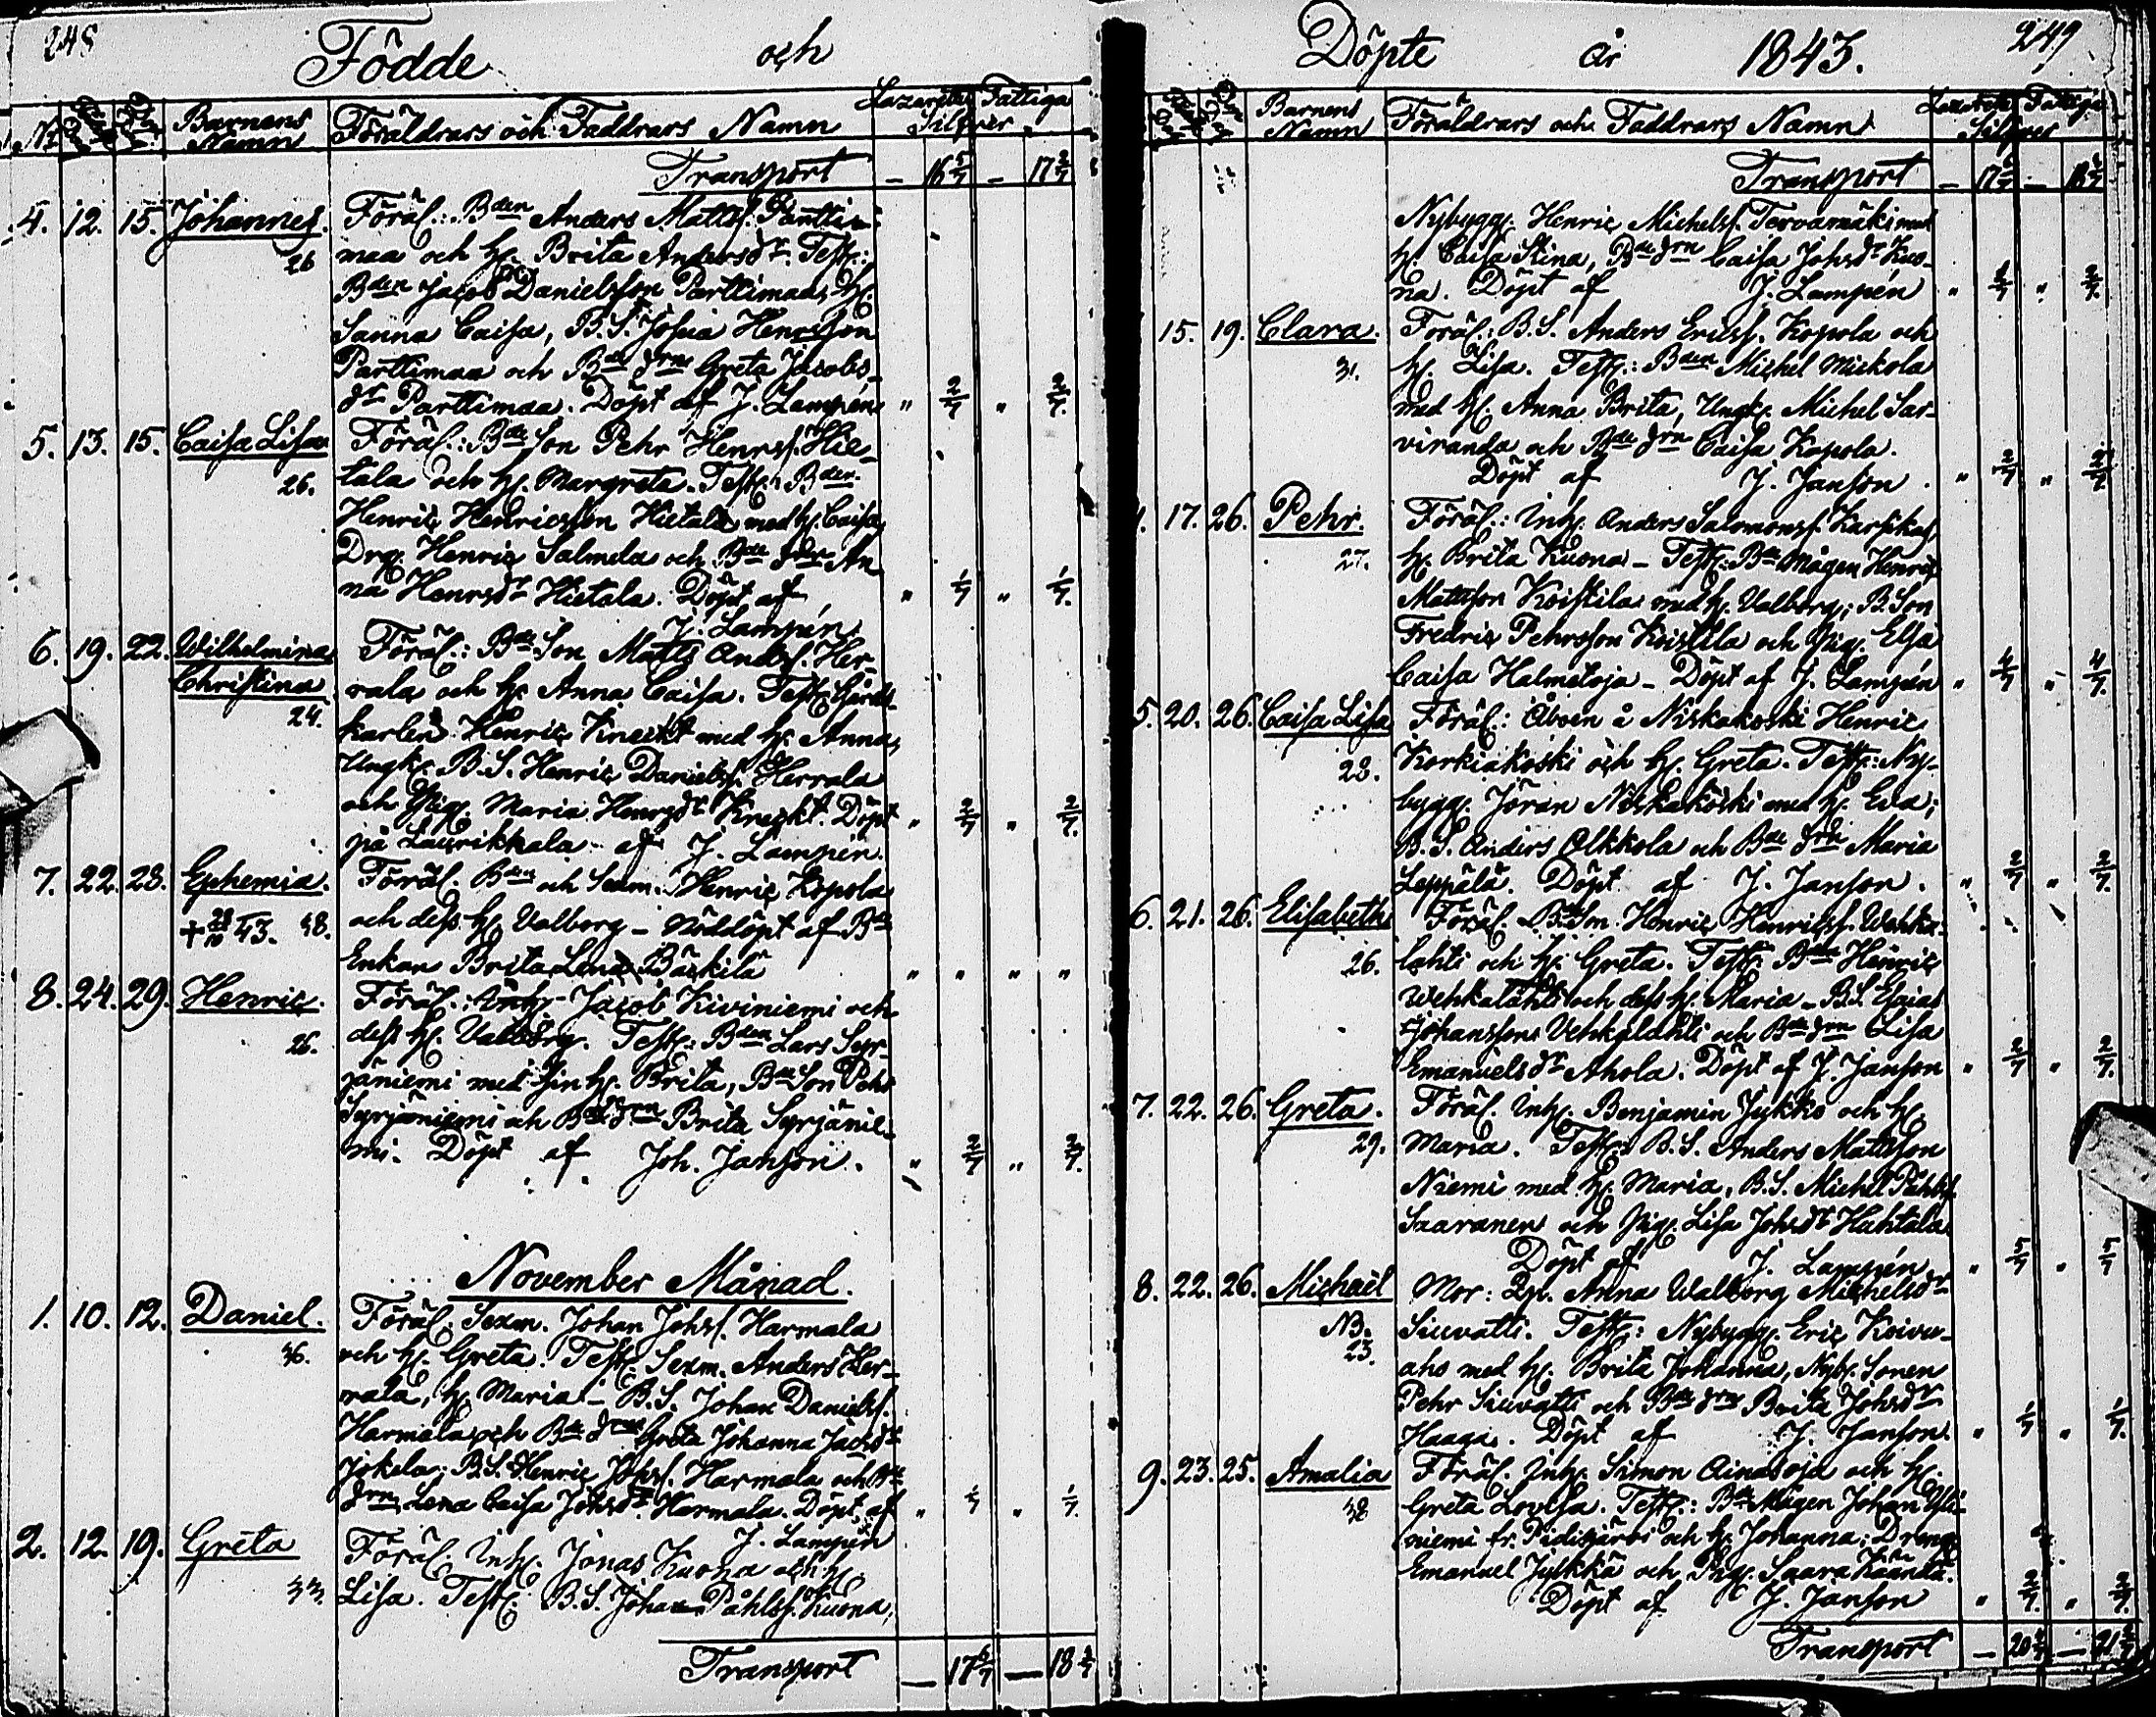 248
Födde och
No
Barnens Namn
Föräldrars och Faddrars Namn
Lazarettet Fattiga
Silfver
Transport — 16 5/7 — 17 2/7
4. 12. 15. Johannes. Föräl.: Bden Anders Matts. Parttimaa
26
maa och h. Brita Andersdr. Test.:
Bden Jacob Danielsson Parttimaa, h.
Sanna Caisa, B.S. Josua Henrsson
Parttimaa och Bde drn Greta Jacobs-
dr Parttimaa. Döpt af J. Lampén " 2/7 " 2/7.
5. 13. 15. Caisa Lisa Föräl.: Bde Son Pehr Henrss. Hie-
26.
tala och h. Margreta. Test. Bden
Henric Henricsson Hietala med h. Caisa,
Drg. Henric Salmela och Bde drn An
na Henrsdr Hietala. Döpt af " 1/7 " 1/7.
J. Lampén
6. 19. 22. Wilhelmina Föräl.: Bde Son Matts Anders. Her-
Christina
rala och h. Anna Caisa. Test.
24.
karlen Henric Kneckt med h. Anna,
Ungk. B.S. Henric Daniels. Herrala
och Pig. Maria Henrsdr Kneckt. Döpt " 2/7 " 2/7.
på Laurikkala af J. Lampén.
7. 22. 28. Ephemia. Föräl. Bden och Sexm. Henric Kopola
+ 28/10 43. 38.
och dess h. Valborg – Nöddöpt af Bde
Enkan Brita Lena Bäckilä " " " "
8. 24. 29. Henric. Föräl.: Inh. Jacob Kiviniemi och
26.
dess h. Valborg. Test.: Bden Lars Syr-
jäniemi med sin h. Brita, Bde Son Pehr
Syrjäniemi och Bde drn Brita Syrjänie-
mi. Döpt af Joh. Janson. " 2/7 " 2/7.
November Månad.
1. 10. 12. Daniel. Föräl. Sexm. Johan Johss. Harmala
36.
och h. Greta. Test. Sexm. Anders Her-
mala, h. Maria – B.S. Johan Daniels.
Harmala och Bde drn Greta Johanna Jacsdr
Jokela; B.S. Henric Johss. Harmala och Bde
drn Lena Caisa Johsdr Harmala. Döpt af " 1/7 " 1/7.
J. Lampén
2. 12. 19. Greta Föräl. Inh. Jonas Kuona och h.
33.
Lisa. Test. B.S. Johan Påhlss. Kuona,
Transport — 17 6/7 — 18 3/7
249
Döpte år 1843.
Barnens Namn
Föräldrars och Faddrars Namn
Lazarett Fattiga
Silfver
Transport
Nybygg. Henric Michelss. Tervamäki med
h. Caisa Stina, Bde drn Caisa Johsdr Kuo-
na. Döpt af J. Lampén
15. 19. Clara. Föräl.: B.S. Anders Ericss. Kopola och
31.
h. Lisa. Test.: Bden Michel Mickola
med h. Anna Brita, Ungk. Michel Sar-
viranda och Bde drn Caisa Kopola.
Döpt af J. Janson. " 2/7 " 2/7.
4. 17. 26. Pehr. Föräl.: Inh. Anders Salomonss. Karsikas,
27.
h. Brita Kuona – Test.: Bde Mågen Henric
Mattsson Koistila med h. Valborg; B. Son
Fredric Pehrsson Koistila och Pig. Elsa
Caisa Halmetoja – Döpt af J. Lampén " 4/7 " 4/7.
5. 20. 26. Caisa Lisa Föräl.: Åboen å Niskakoski Henric
28.
Korkiakoski och h. Greta. Test.: Ny-
bygg. Jöran Niskakoski med h. Eva;
B.S. Anders Olkkola och Bde drn Maria
Leppälä. Döpt af J. Janson. " 2/7 " 2/7.
6. 21. 26. Elisabeth Föräl. Bde Sm. Henric Henricss. Wehka-
26.
lahti och h. Greta. Test. Bden Henric
Wehkalahti och dess h. Maria – B.S. Esaias
Johansson Vehkalahti och Bde drn Lisa
Emanuelsdr Ahola. Döpt af J. Janson " 2/7 " 2/7.
7. 22. 26. Greta. Föräl. Inh. Benjamin Jykko och h.
29.
Maria. Test.: B.S. Anders Mattsson
Niemi med h. Maria, B.S. Michel Påhlss.
Saaranen och Pig. Lisa Johsdr Hahtala
Döpt af J. Lampén " 5/7 " 5/7
8. 22. 26. Michaël Mor: Qp. Anna Walborg Michelsdr
NB.
23.
Siuvatti. Test.: Nybygg. Eric Koivu-
aho med h. Brita Johanna, Nyb. Sonen
Pehr Siuvatti och Bde drn Brita Johsdr
Haaga. Döpt af J. Janson. " 1/7 " 1/7.
9. 23. 25. Amalia Föräl. Inh. Simon Ainasoja och h.
38
Greta Lovisa. Test.: Bde Mågen Johan Yli-
niemi fr. Pidisjärvi och h. Johanna; Dreng.
Emanuel Jylkkä och Pig. Saara Käänta.
Döpt af J. Janson " 2/7. " 2/7.
Transport